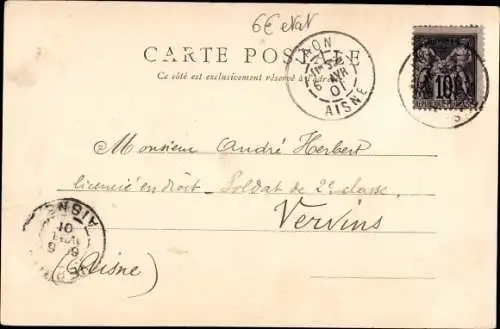 6€ NaN
CARTE POSTALE
Ce côté est exclusivement réservé à l'adresse
LAON
6 AVR
01
AISNE
10
Monsieur André Herbert
licencié en droit - Soldat de 2e classe.
Vervins
(Aisne)
AISNE
01